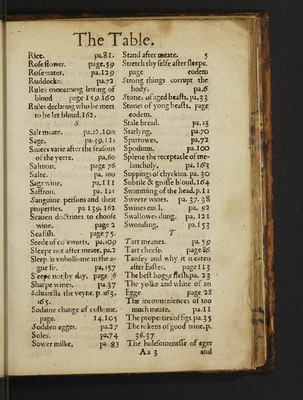 The Table.
Rice. pa.81.
Rose flower. page.59
Rose water. pa.129
Ruddocke. pa.72
Rules concerning letting of
bloud page 159.160
Rules declaring who be meet
to be let bloud.162.
S
Salt meate. pa.27.102
Sage. pa.59.111
Sauces varie after the seasons
of the yeere. pa.60
Salmon. page 76
Salte. pa.100
Sage wine. pa.111
Saffron. pa.121
Sanguine persons and their
properties. pa 139.162
Seauen doctrines to choose
wine. page 2
Sea fish. page 75.
Seede of coleworts. pa.109
Sleepe not after meate. pa.2
Sleep is vnholsome in the a-
gue fit. pa.157
Sleepe not by day. page 6
Sharpe wines. pa.37
Saluatella the veyne. p.163.
165.
Sodaine change of custome.
page. 14.105
Sodden egges. pa.27
Soles. pa.74
Sower milke. pa.83
Stand after meate. 5
Stretch thy selfe after sleepe.
page eodem
Strong things corrupt the
body. pa.6
Stones of aged beasts. pa.33
Stones of yong beasts. page
eodem.
Stale bread. pa.13
Starlyng. pa.70
Sparrowes. pa.72
Spodium. pa.100
Splene the receptacle of me-
lancholy. pa.163
Suppings of chyckins. pa.30
Subtile & grosse bloud.164
Swimming of the head. p.11
Sweete wines. pa. 37. 38
Swines euill. pa. 92
Swallowes dung. pa. 121
Swonding. pa.153
T
Tart meanes. pa. 59
Tart cheese page 86
Tansey and why it is eaten
after Easter. page 113
The best hogge flesh. pa. 23
The yolke and white of an
Egge page 28
The inconueniences of too
much meate. pa.11
The properties of figs. pa.35
The tokens of good wine. p.
36.37
The holesomenesse of eger
Aa 3 and